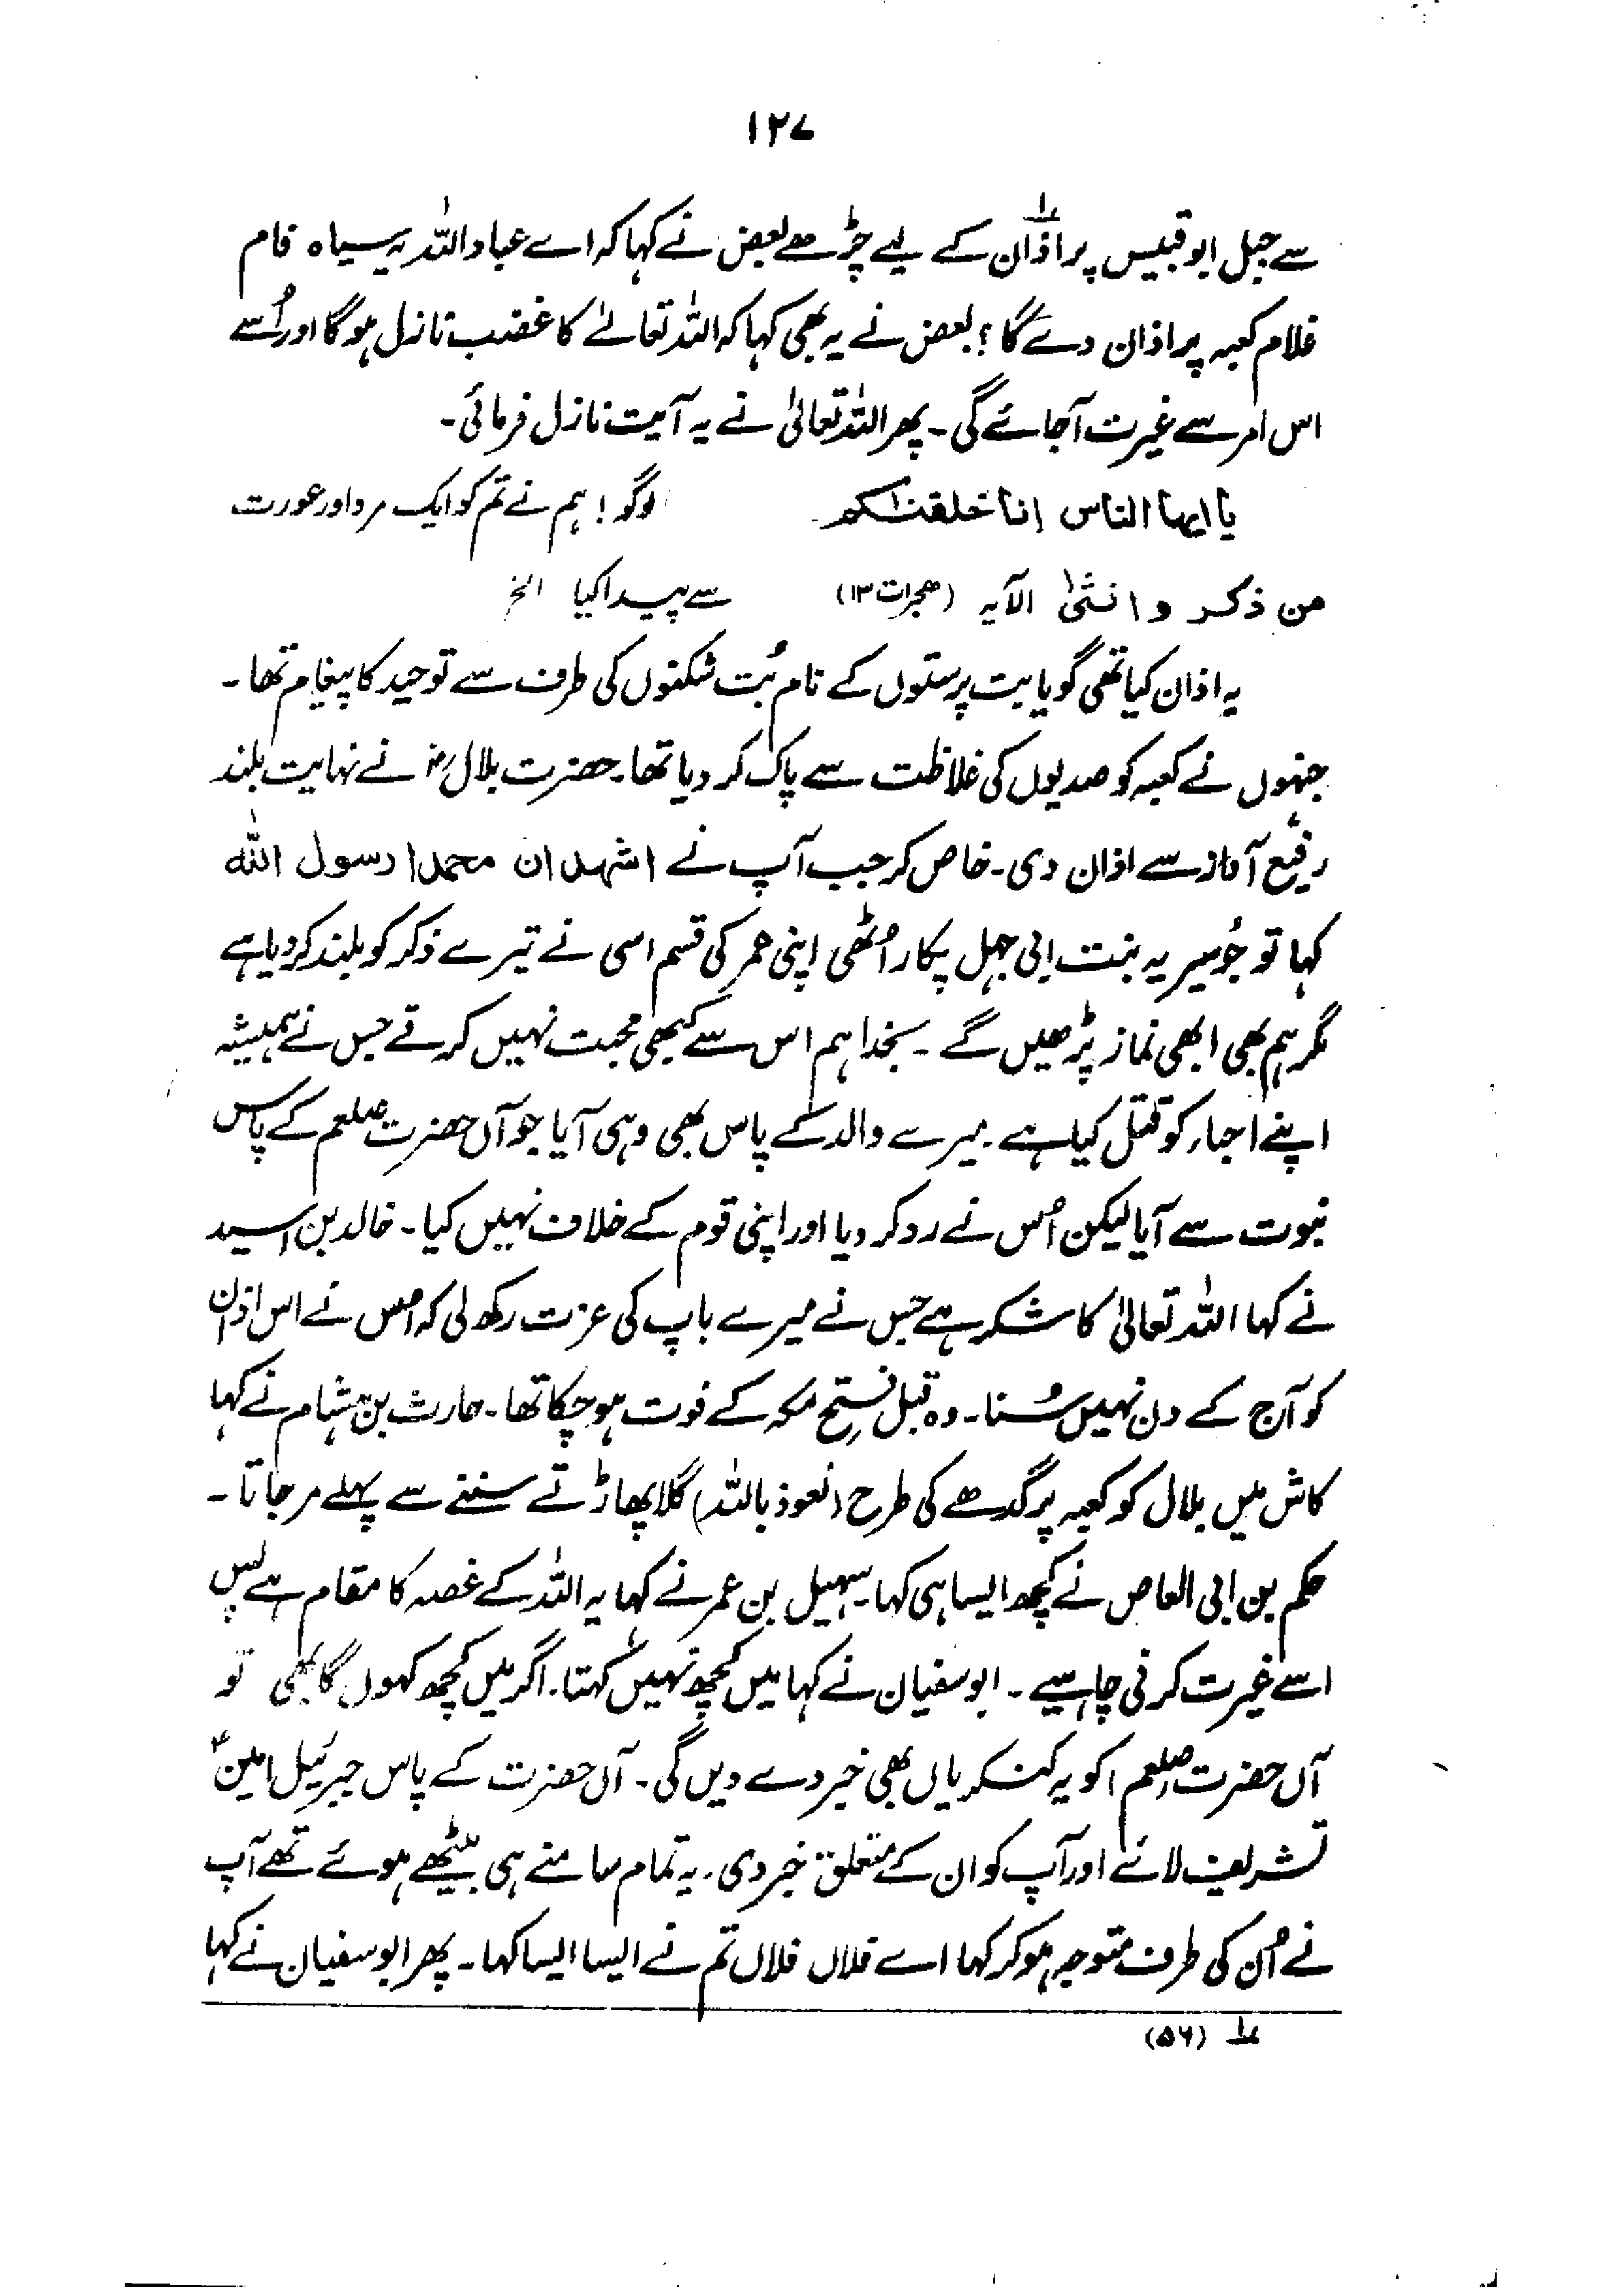 ۱۲۷
سے جبل ابو قبیس پر اذان کے لیے چڑھے بعض نے کہا کہ اے عباد اللہ یہ سیاہ فام
غلام کعبہ پر اذان دے گا؟ بعض نے یہ بھی کہا کہ اللہ تعالےٰ کا غضب نازل ہوگا اور اُسے
اس امر سے غیرت آجائے گی۔ پھر اللہ تعالیٰ نے یہ آیت نازل فرمائی۔
یا ایہا الناس انا خلقنٰکم لوگو! ہم نے تم کو ایک مرد اور عورت
من ذکر و انثیٰ الآیہ (حجرات ۱۳) سے پیدا کیا الخ
یہ اذان کیا تھی گویا بت پرستوں کے نام بُت شکنوں کی طرف سے توحید کا پیغام تھا۔
جنہوں نے کعبہ کو صدیوں کی غلاظت سے پاک کر دیا تھا۔ حضرت بلالؓ نے نہایت بلند
رفیع آواز سے اذان دی۔ خاص کر جب آپ نے اشہد ان محمدا رسول اللہ
کہا تو جُویریہ بنت ابی جہل پکار اُٹھی اپنی عمر کی قسم اسی نے تیرے ذکر کو بلند کر دیا ہے
مگر ہم بھی ابھی نماز پڑھیں گے۔ بخدا ہم اس سے کبھی محبت نہیں کرتے جس نے ہمیشہ
اپنے احباء کو قتل کیا ہے۔ میرے والد کے پاس بھی وہی آیا جو آں حضرت صلعم کے پاس
نبوت سے آیا لیکن اُس نے رد کر دیا اور اپنی قوم کے خلاف نہیں کیا۔ خالد بن اسید
نے کہا اللہ تعالیٰ کا شکر ہے جس نے میرے باپ کی عزت رکھ لی کہ اُس نے اس اذان
کو آج کے دن نہیں سُنا۔ وہ قبل فتح مکہ کے فوت ہو چکا تھا۔ حارث بن ہشام نے کہا
کاش میں بلال کو کعبہ پر گدھے کی طرح (نعوذ باللہ) گلا پھاڑتے سننے سے پہلے مر جاتا۔
حکم بن ابی العاص نے کچھ ایسا ہی کہا۔ سہیل بن عمر نے کہا یہ اللہ کے غصہ کا مقام ہے پس
اسے غیرت کرنی چاہیے۔ ابوسفیان نے کہا میں کچھ نہیں کہتا۔ اگر میں کچھ کہوں گا بھی تو
آں حضرت صلعم کو یہ کنکریاں بھی خبر دے دیں گی۔ آں حضرت کے پاس جبرئیل امینؑ
تشریف لائے اور آپ کو ان کے متعلق خبر دی۔ یہ تمام سامنے ہی بیٹھے ہوئے تھے آپ
نے اُن کی طرف متوجہ ہو کر کہا اے فلاں فلاں تم نے ایسا ایسا کہا۔ پھر ابوسفیان نے کہا
؂۱ (۵۶)